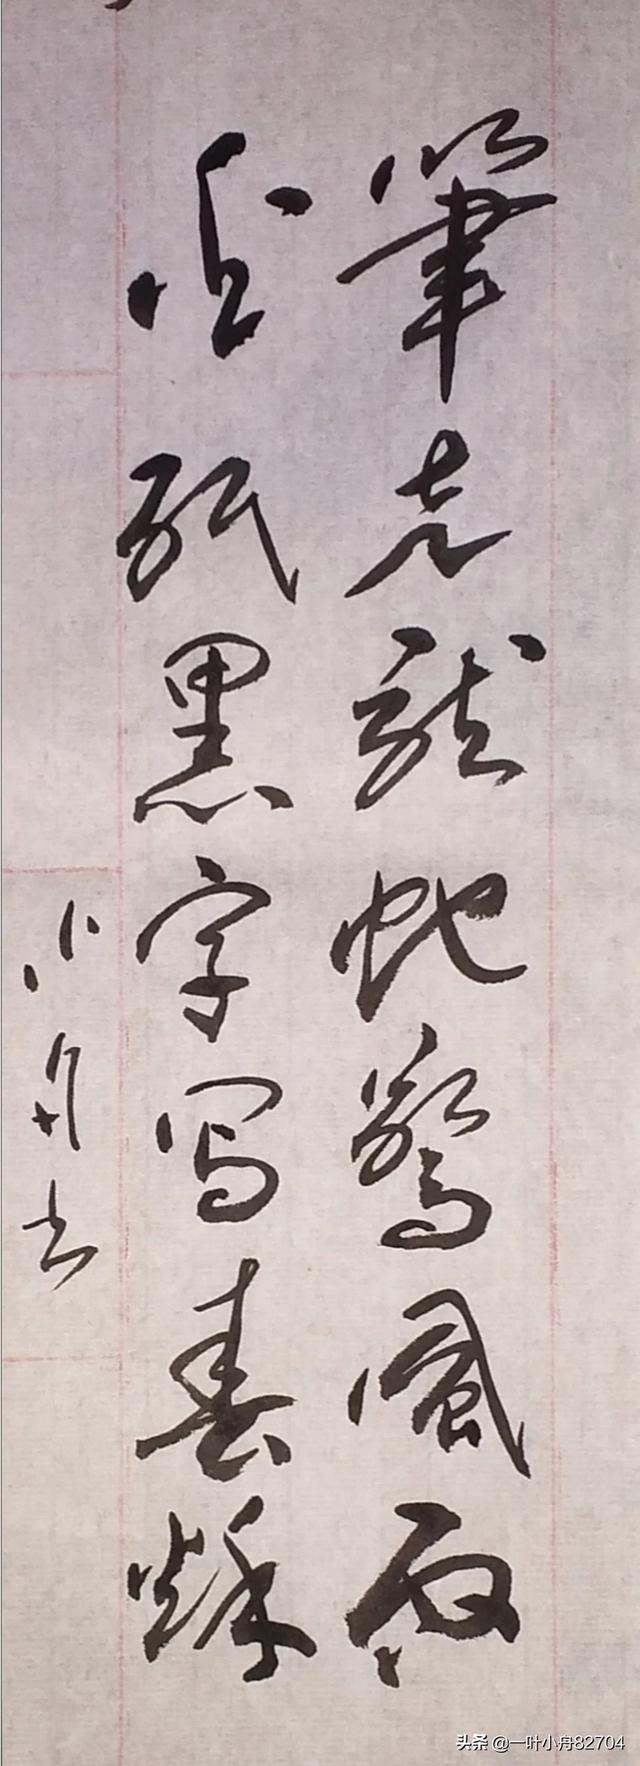 筆走龍蛇驚風雨
白紙黑字写春秋
小舟书
头条 @一叶小舟82704